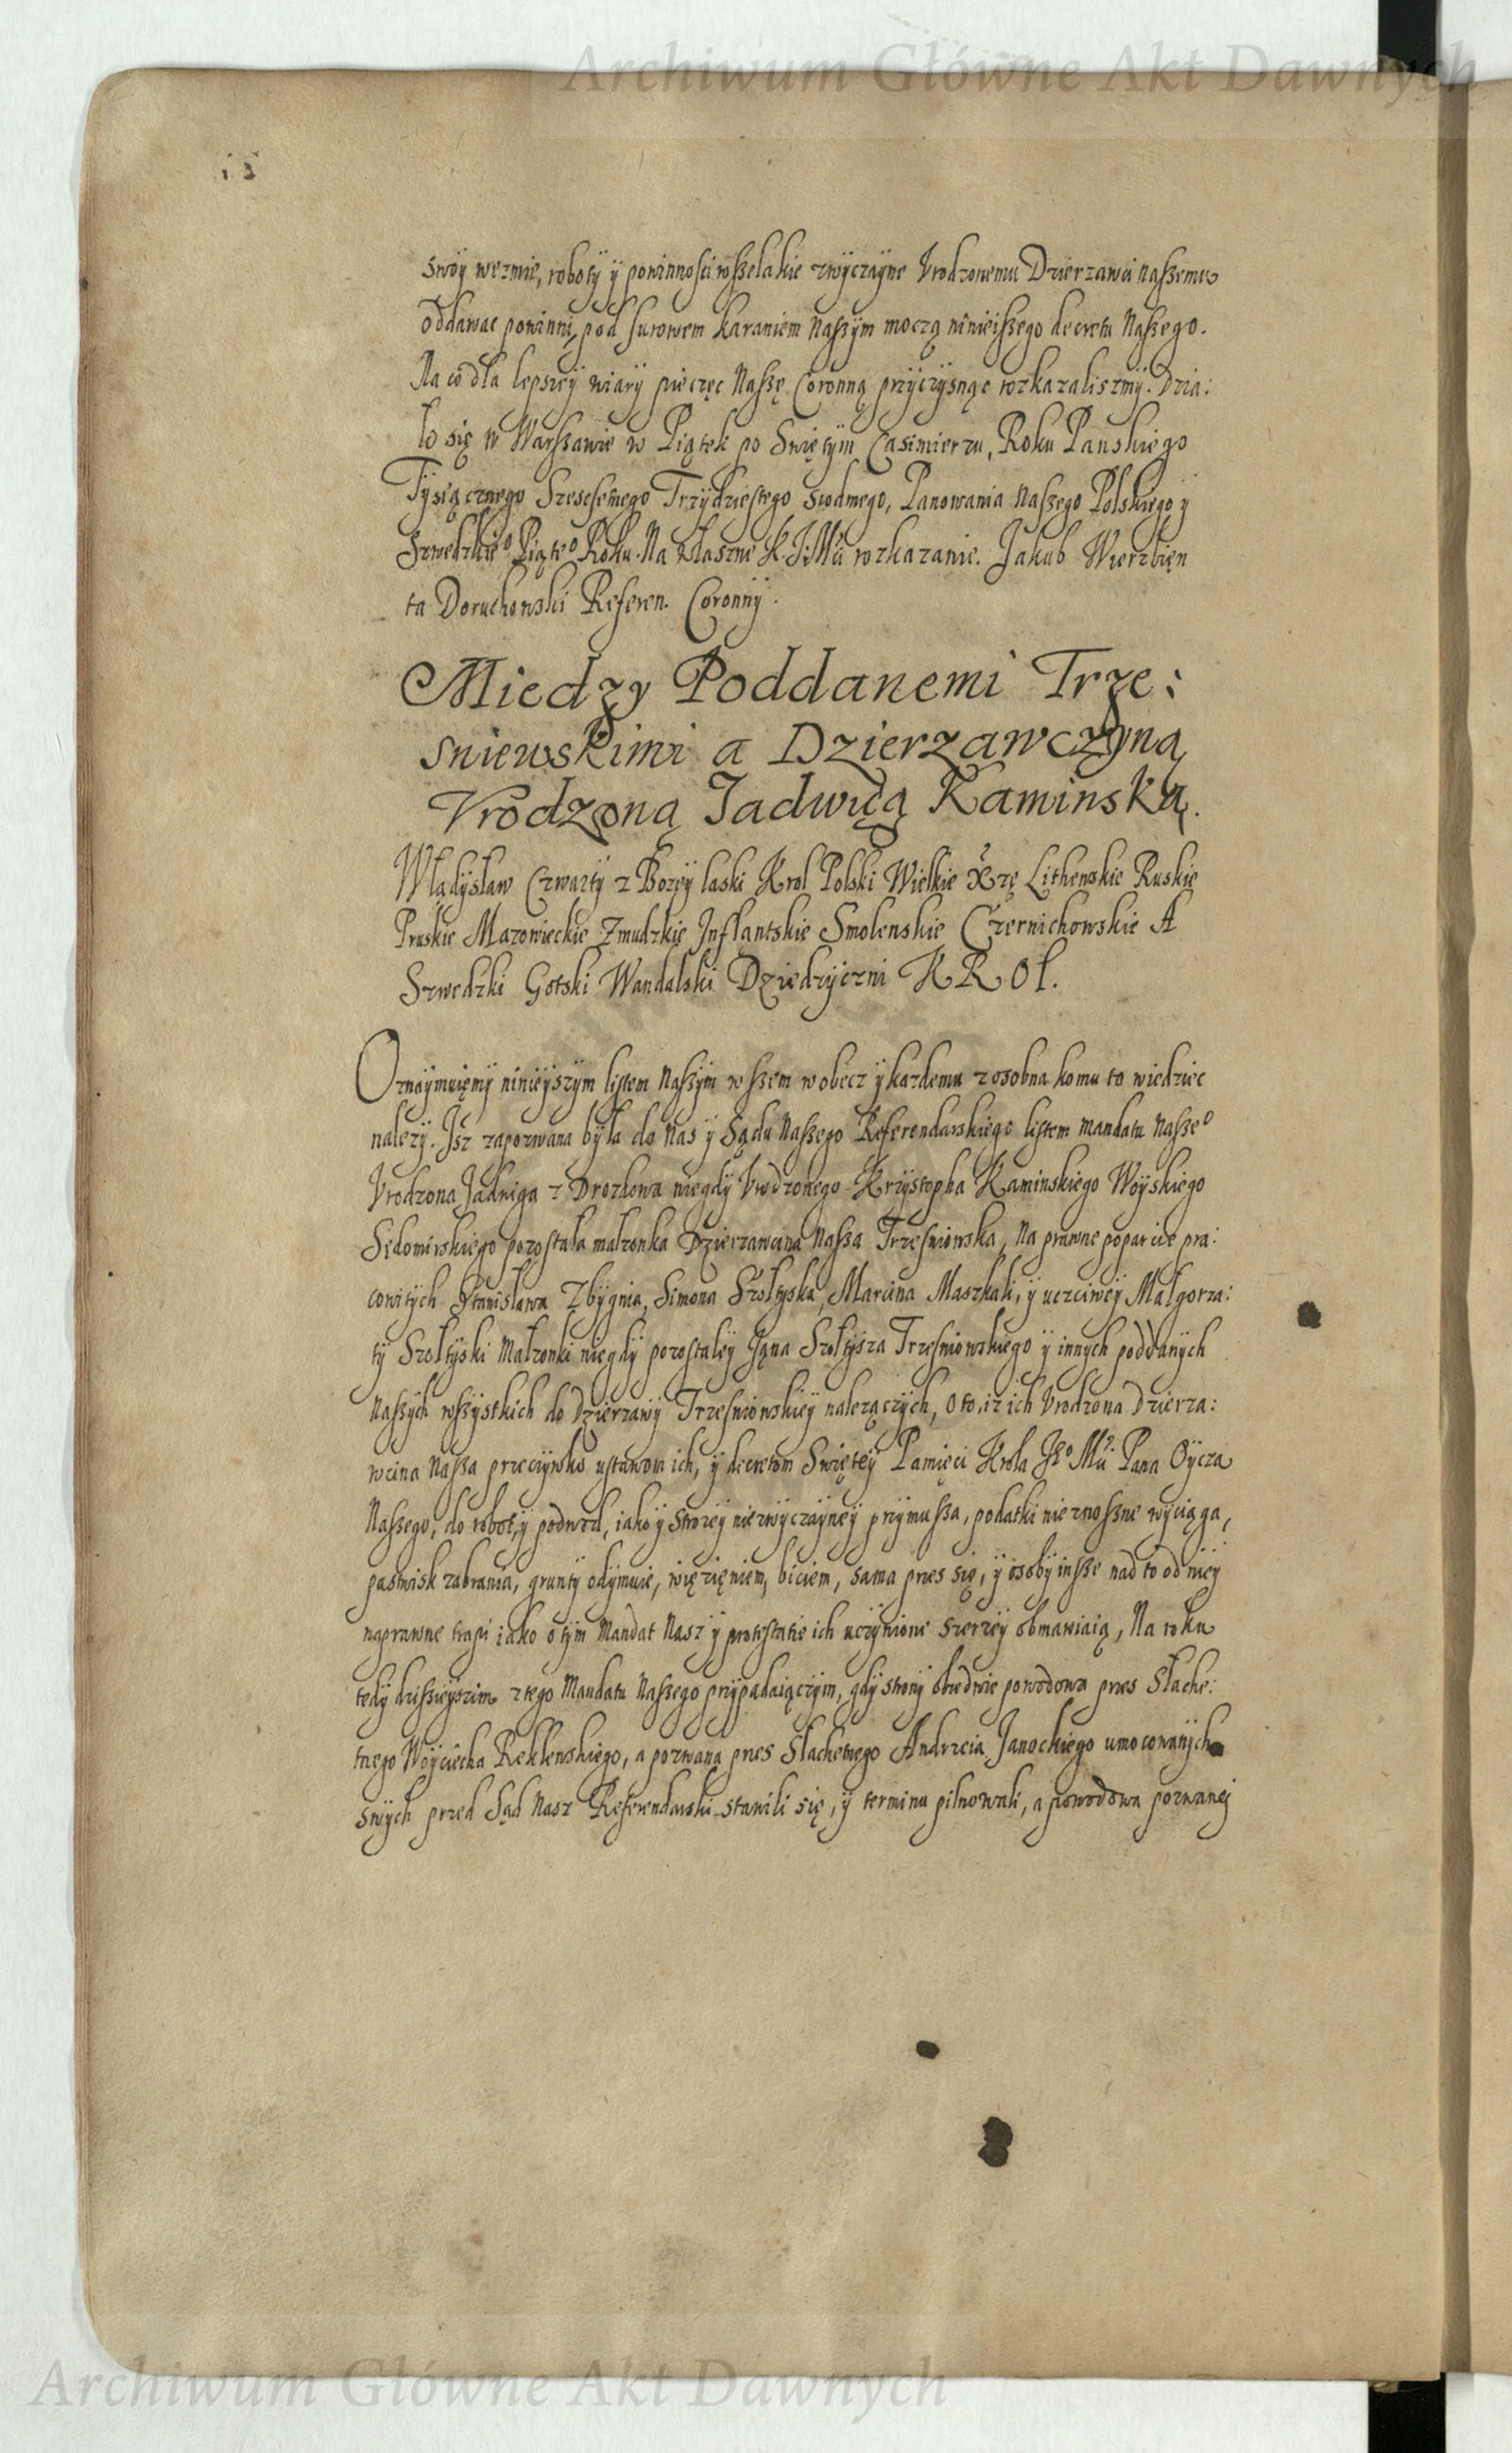 Archiwum Główne Akt Dawnych
swoÿ wezmie, robotÿ ÿ powinnosci wszelakie zwÿczaÿne Vrodzonemu Dzierzawci naszemu
oddawac powinni, pod surowem karaniem Naszÿm moczą ninieiszego decretu Naszego.
Na co dla lepszeÿ wiarÿ pieczęc Naszę Coronną przÿczÿsnąc rozkazaliszmÿ. Dzia:
ło się w Warszawie w Piątek po Swiętÿm Casimierzu, Roku Panskiego
Tÿsiącznego Szescsetnego Trzÿdziestego Siodmego, Panowania Naszego Polskiego ÿ
Szwedzkie⁰ Piąte⁰ Roku. Na własne K.J.Mci rozkazanie. Jakub Wierzbięn
ta Doruchowski Referen. Coronnÿ.
Miedzy Poddanemi Trze:
sniewskimi a Dzierzawczyną
Vrodzoną Jadwigą Kaminską.
Władÿsław Czwartÿ z Bozeÿ łaski Krol Polski Wielkie Xzę Lithewskie Ruskie
Pruskie Mazowieckie Zmudzkie Jnflantskie Smolenskie Czernichowskie A
Szwedzki Gotski Wandalski Dziedzÿczni KROL.
Oznaÿmuięmÿ ninieÿszÿm listem Naszÿm wszem wobecz ÿ kazdemu z osobna komu to wiedziec
nalezÿ. Jsz zapozwana bÿła do Nas ÿ Sądu Naszego Referendarskiego listem mandatu Nasze⁰
Vrodzona Jadwiga z Drozdowa niegdÿ Vrodzonego Krzÿstopha Kaminskiego Woÿskiego
Sędomirskiego pozostała małzonka Dzierzawcina Nasza Trzesniowska, Na prawne poparcie pra:
cowitÿch Stanisława Zbÿgnia, Simona Szołtÿska, Marcina Maszkali, ÿ uczciweÿ Małgorza:
tÿ Szołtÿski Małzonki niegdÿ pozostałeÿ Jąna Szołtÿsza Trzesniowskiego ÿ innych poddanÿch
Naszÿch wszÿstkich do Dzierzawÿ Trzesniowskieÿ nalezączÿch, O to, iz ich Vrodzona Dzierza:
wcina Nasza przeciwko ustawom ich, ÿ decretom Swięteÿ Pamięci Krola Je⁰ Mci Pana Oÿcza
Naszego, do robot, ÿ podwod, iako ÿ strozeÿ niezwÿczaÿneÿ przÿmusza, podatki nieznoszne wÿciąga,
pastwisk zabrania, gruntÿ odÿmuie, więzięniem, biciem, sama przes się, ÿ osobÿ insze nad to od nieÿ
naprawne trapi iako o tÿm Mandat Nasz ÿ protestatie ich uczÿnione szerzeÿ obmawiaią, Na roku
tedÿ dzisieÿszim z tego Mandatu Naszego przÿpadaiączÿm, gdÿ stronÿ obiedwie powodowa przes Slache:
tnego Woÿciecha Reklewskiego, a pozwana przes Slachetnego Andrzeia Janockiego umocowanÿch
swÿch przed Sąd Nasz Referendarski stawili się, ÿ terminu pilnowali, a powodowa pozwanej
Archiwum Główne Akt Dawnych